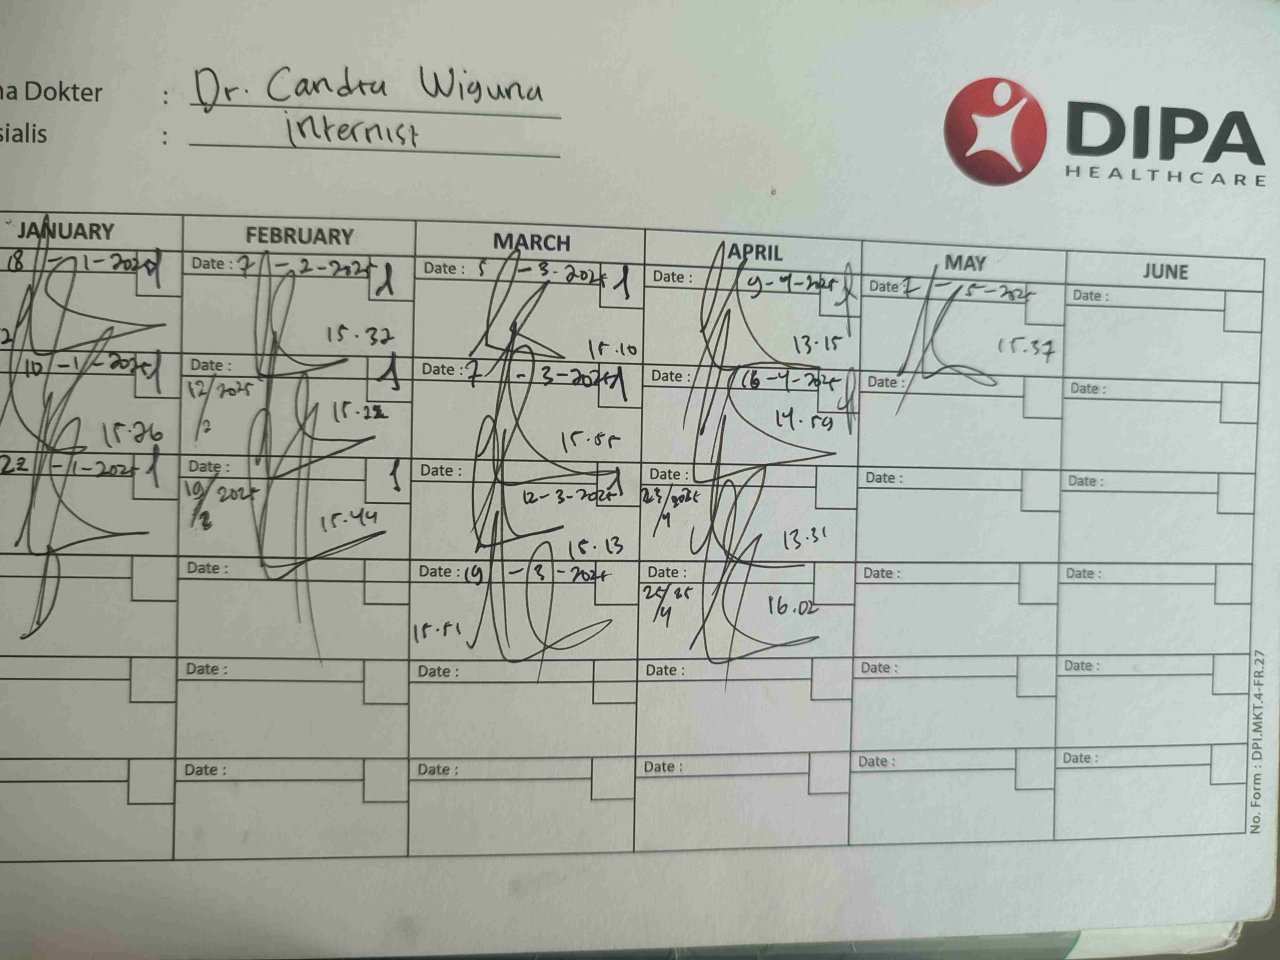 na Dokter : Dr. Candra Wiguna
sialis : internist
DIPA
HEALTHCARE
JANUARY FEBRUARY MARCH APRIL MAY JUNE
18-1-2025 1 Date : 7-2-2025 1 Date : 5-3-2025 1 Date : 9-4-2025 Date : 7-5-2025 Date :
15.32 15.10 13.15 15.37
10-1-2025 1 Date : 12/2 2025 1 Date : 7-3-2025 1 Date : 16-4-2025 Date : Date :
15.26 15.22 15.55 14.59
22-1-2025 1 Date : 19/2 2025 1 Date : 12-3-2025 1 Date : 23/4 2025 Date : Date :
15.44 15.13 13.31
Date : Date : 19-3-2025 Date : 25/4 25 Date : Date :
15.51 16.02
Date : Date : Date : Date : Date :
Date : Date : Date : Date : Date :
No. Form : DPI.MKT.4-FR.27